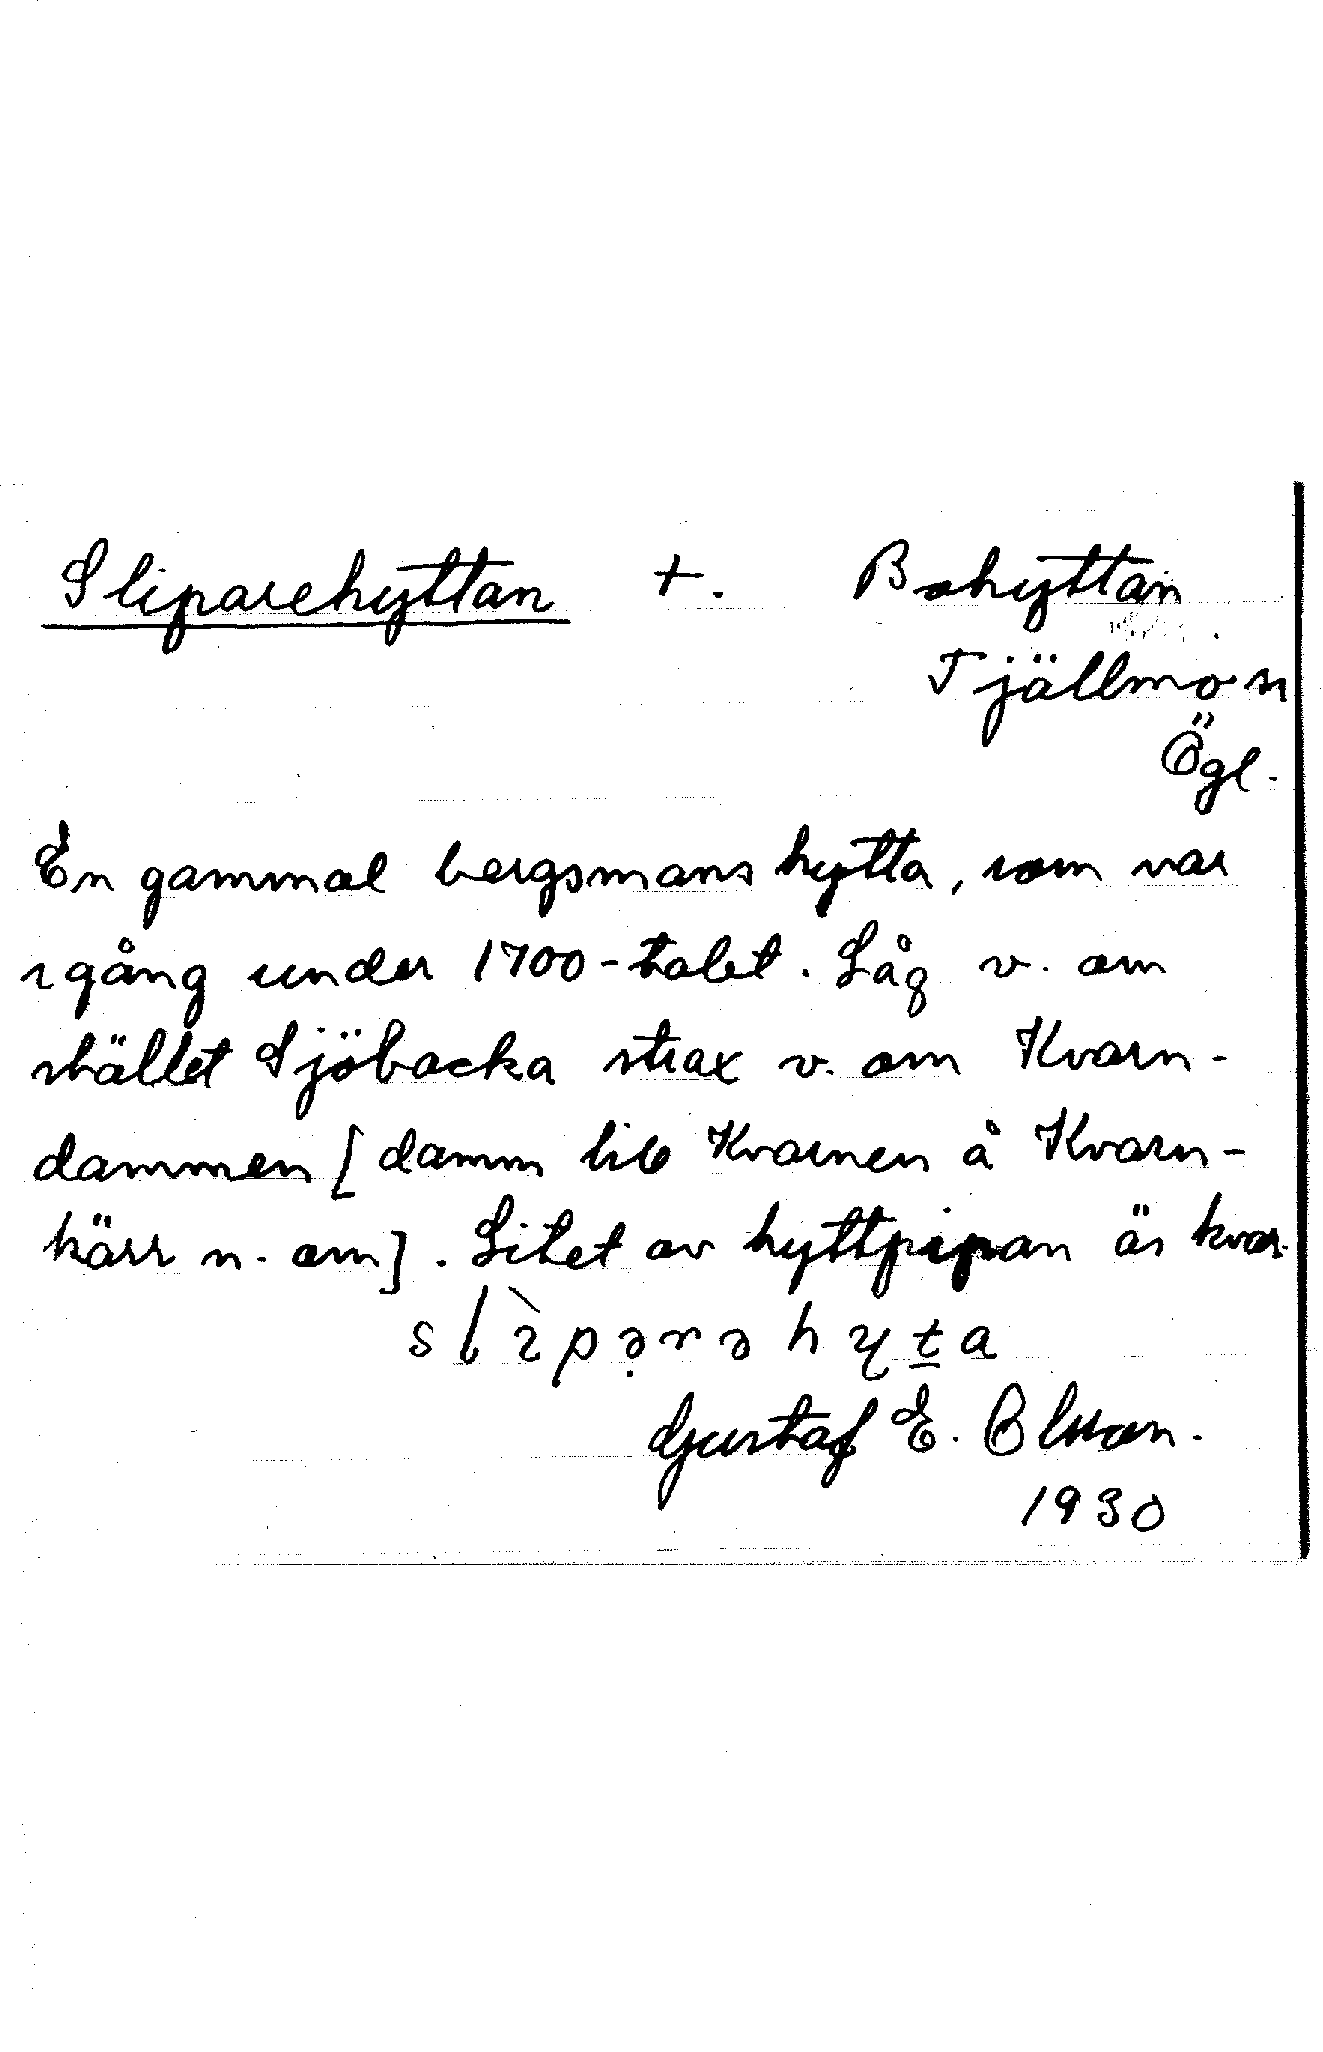 Sliparehyttan +. Bohyttan
Tjällmo sn
Ögl.
En gammal bergsmanshytta, som var
i gång under 1700-talet. Låg v. om
stället Sjöbacka strax v. om Kvarn-
dammen [damm till Kvarnen å Kvarn-
kärr n. om]. Litet av hyttpipan är kvar.
Gustaf E. Olsson.
1930